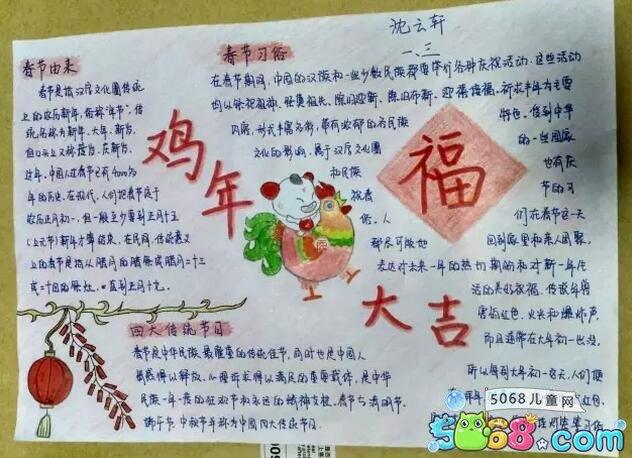 沈云轩
一、三
春节由来
春节是指汉字文化圈传统
上的农历新年，俗称“年节”，传
统名称为新年、大年、新岁，
但口头上又称度岁、庆新岁、
过年，中国人过春节已有4000多
年的历史。在现代，人们把春节定于
农历正月初一，但一般至少要到正月十五
（上元节）新年才算结束，在民间，传统意义
上的春节是指从腊月的腊祭或腊月二十三
或二十四的祭灶，一直到正月十九。
春节习俗
在春节期间，中国的汉族和一些少数民族都要举行各种庆祝活动。这些活动
均以祭祀祖神、祭奠祖先、除旧迎新、迎禧接福、祈求丰年为主要
内容，形式丰富多彩，带有浓郁的各民族
特色。受到中华
文化的影响，属于汉字文化圈
的一些国家
和民族
也有庆
祝春
节的习
俗。人
们在春节这一天
都尽可能地
回到家里和亲人团聚，
表达对未来一年的热切期盼和对新一年生
活的美好祝福。
鸡年
福
大吉
四大传统节日
春节是中华民族最隆重的传统佳节，同时也是中国人
情感得以释放、心理诉求得以满足的重要载体，是中华
民族一年一度的狂欢节和永远的精神支柱。春节与清明节、
端午节、中秋节并称为中国四大传统节日。
5068儿童网
5068.com